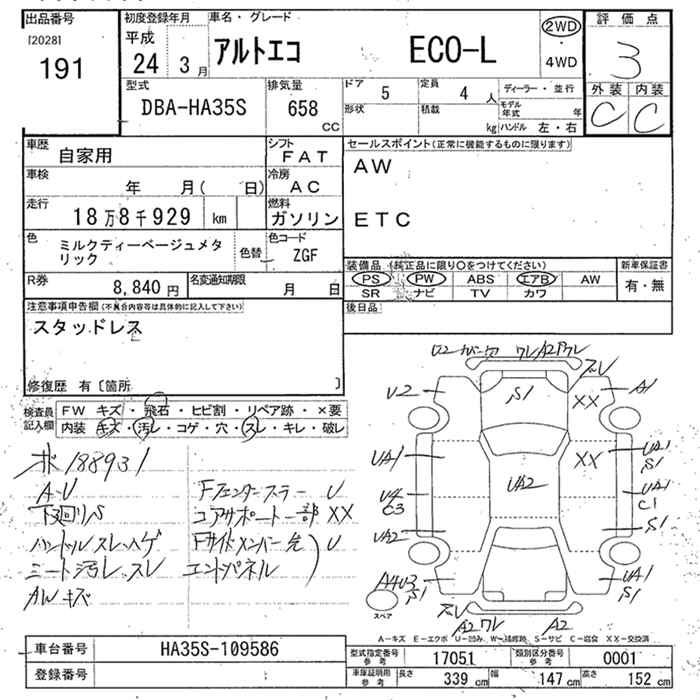 出品番号
[2028]
191
初度登録年月
平成
24 3月
車名・グレード
アルトエコ ECO-L
2WD
・
4WD
評価点
3
外装 内装
C C
型式
DBA-HA35S
排気量
658
cc
ドア 5
定員 4 人
ディーラー・並行
形状
積載 kg
モデル年式 年
ハンドル 左・右
車歴
自家用
シフト
FAT
車検
年 月( 日)
冷房
AC
走行
18万8千929 km
燃料
ガソリン
色
ミルクティーベージュメタ
リック
色替
色コード
ZGF
R券
8,840 円
名変通知期限
月 日
セールスポイント(正常に機能するものに限ります)
AW
ETC
装備品 (純正品に限り○をつけてください)
PS PW ABS エアB AW
SR ナビ TV カワ
新車保証書
有・無
後日品
注意事項申告欄(不具合内容等は具体的に記入して下さい)
スタッドレス
修復歴 有〔箇所 〕
検査員
記入欄
FW キズ・飛石・ヒビ割・リペア跡・×要
内装 キズ・汚レ・コゲ・穴・スレ・キレ・破レ
ホ 188931
A-U
下廻りS
ハンドルスレ、ハゲ
シート汚レ、スレ
AWキズ
Fフェンダーステー U
コアサポート一部 XX
Fサイドメンバー先 U
エンドパネル
U2 カバー穴 ワレ/A2 ワレ
ズレ
S1
XX
A1
U2
UA1
XX
UA1
S1
U4
C3
UA2
UA1
C1
UA2
S1
A4U3
S1
UA1
S1
スペア
ズレ
A2ワレ
A2
A-キズ E-エクボ U-凹み W-補修跡 S-サビ C-腐食 XX-交換済
車台番号
HA35S-109586
登録番号
型式指定番号
参考
17051
類別区分番号
参考
0001
車庫証明用
参考
長さ 339 cm 幅 147 cm 高さ 152 cm